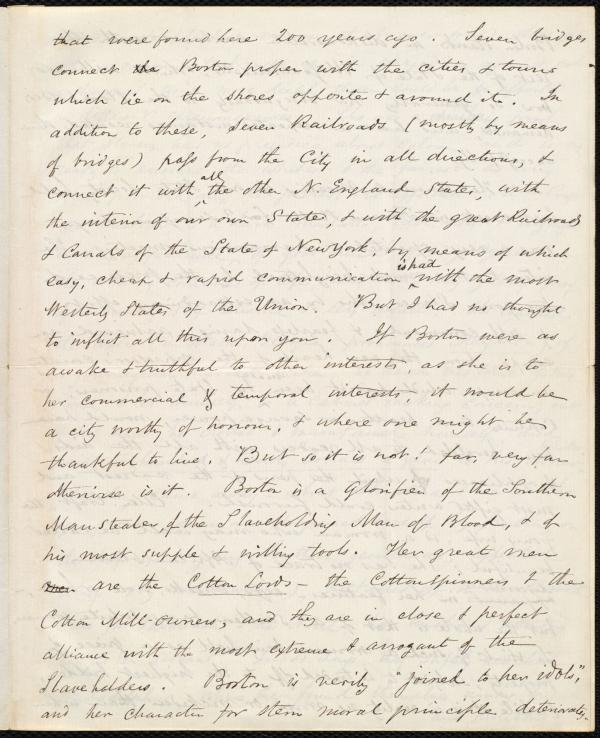 that were found here 200 years ago. Seven bridges
connect the Boston proper with the cities & towns
which lie on the shores opposite & around it. In
addition to these, seven Railroads (mostly by means
of bridges) pass from the City in all directions, &
connect it with all the other N. England States, with
the interior of our own State, & with the great Railroads
& Canals of the State of New York, by means of which
easy, cheap & rapid communication is had with the most
Westerly States of the Union. But I had no thought
to inflict all this upon you. If Boston were as
awake & truthful to other interests, as she is to
her commercial & temporal interests, it would be
a city worthy of honour, & where one might be
thankful to live. But so it is not! far, very far
otherwise is it. Boston is a Glorifier of the Southern
Manstealer, of the Slaveholding Man of Blood, & of
his most supple & willing tools. Her great men
men are the Cotton Lords – the Cotton Spinners & the
Cotton Mill-owners, and they are in close & perfect
alliance with the most extreme & arrogant of the
Slaveholders. Boston is verily "joined to her idols",
and her character for stern moral principle deteriorates.